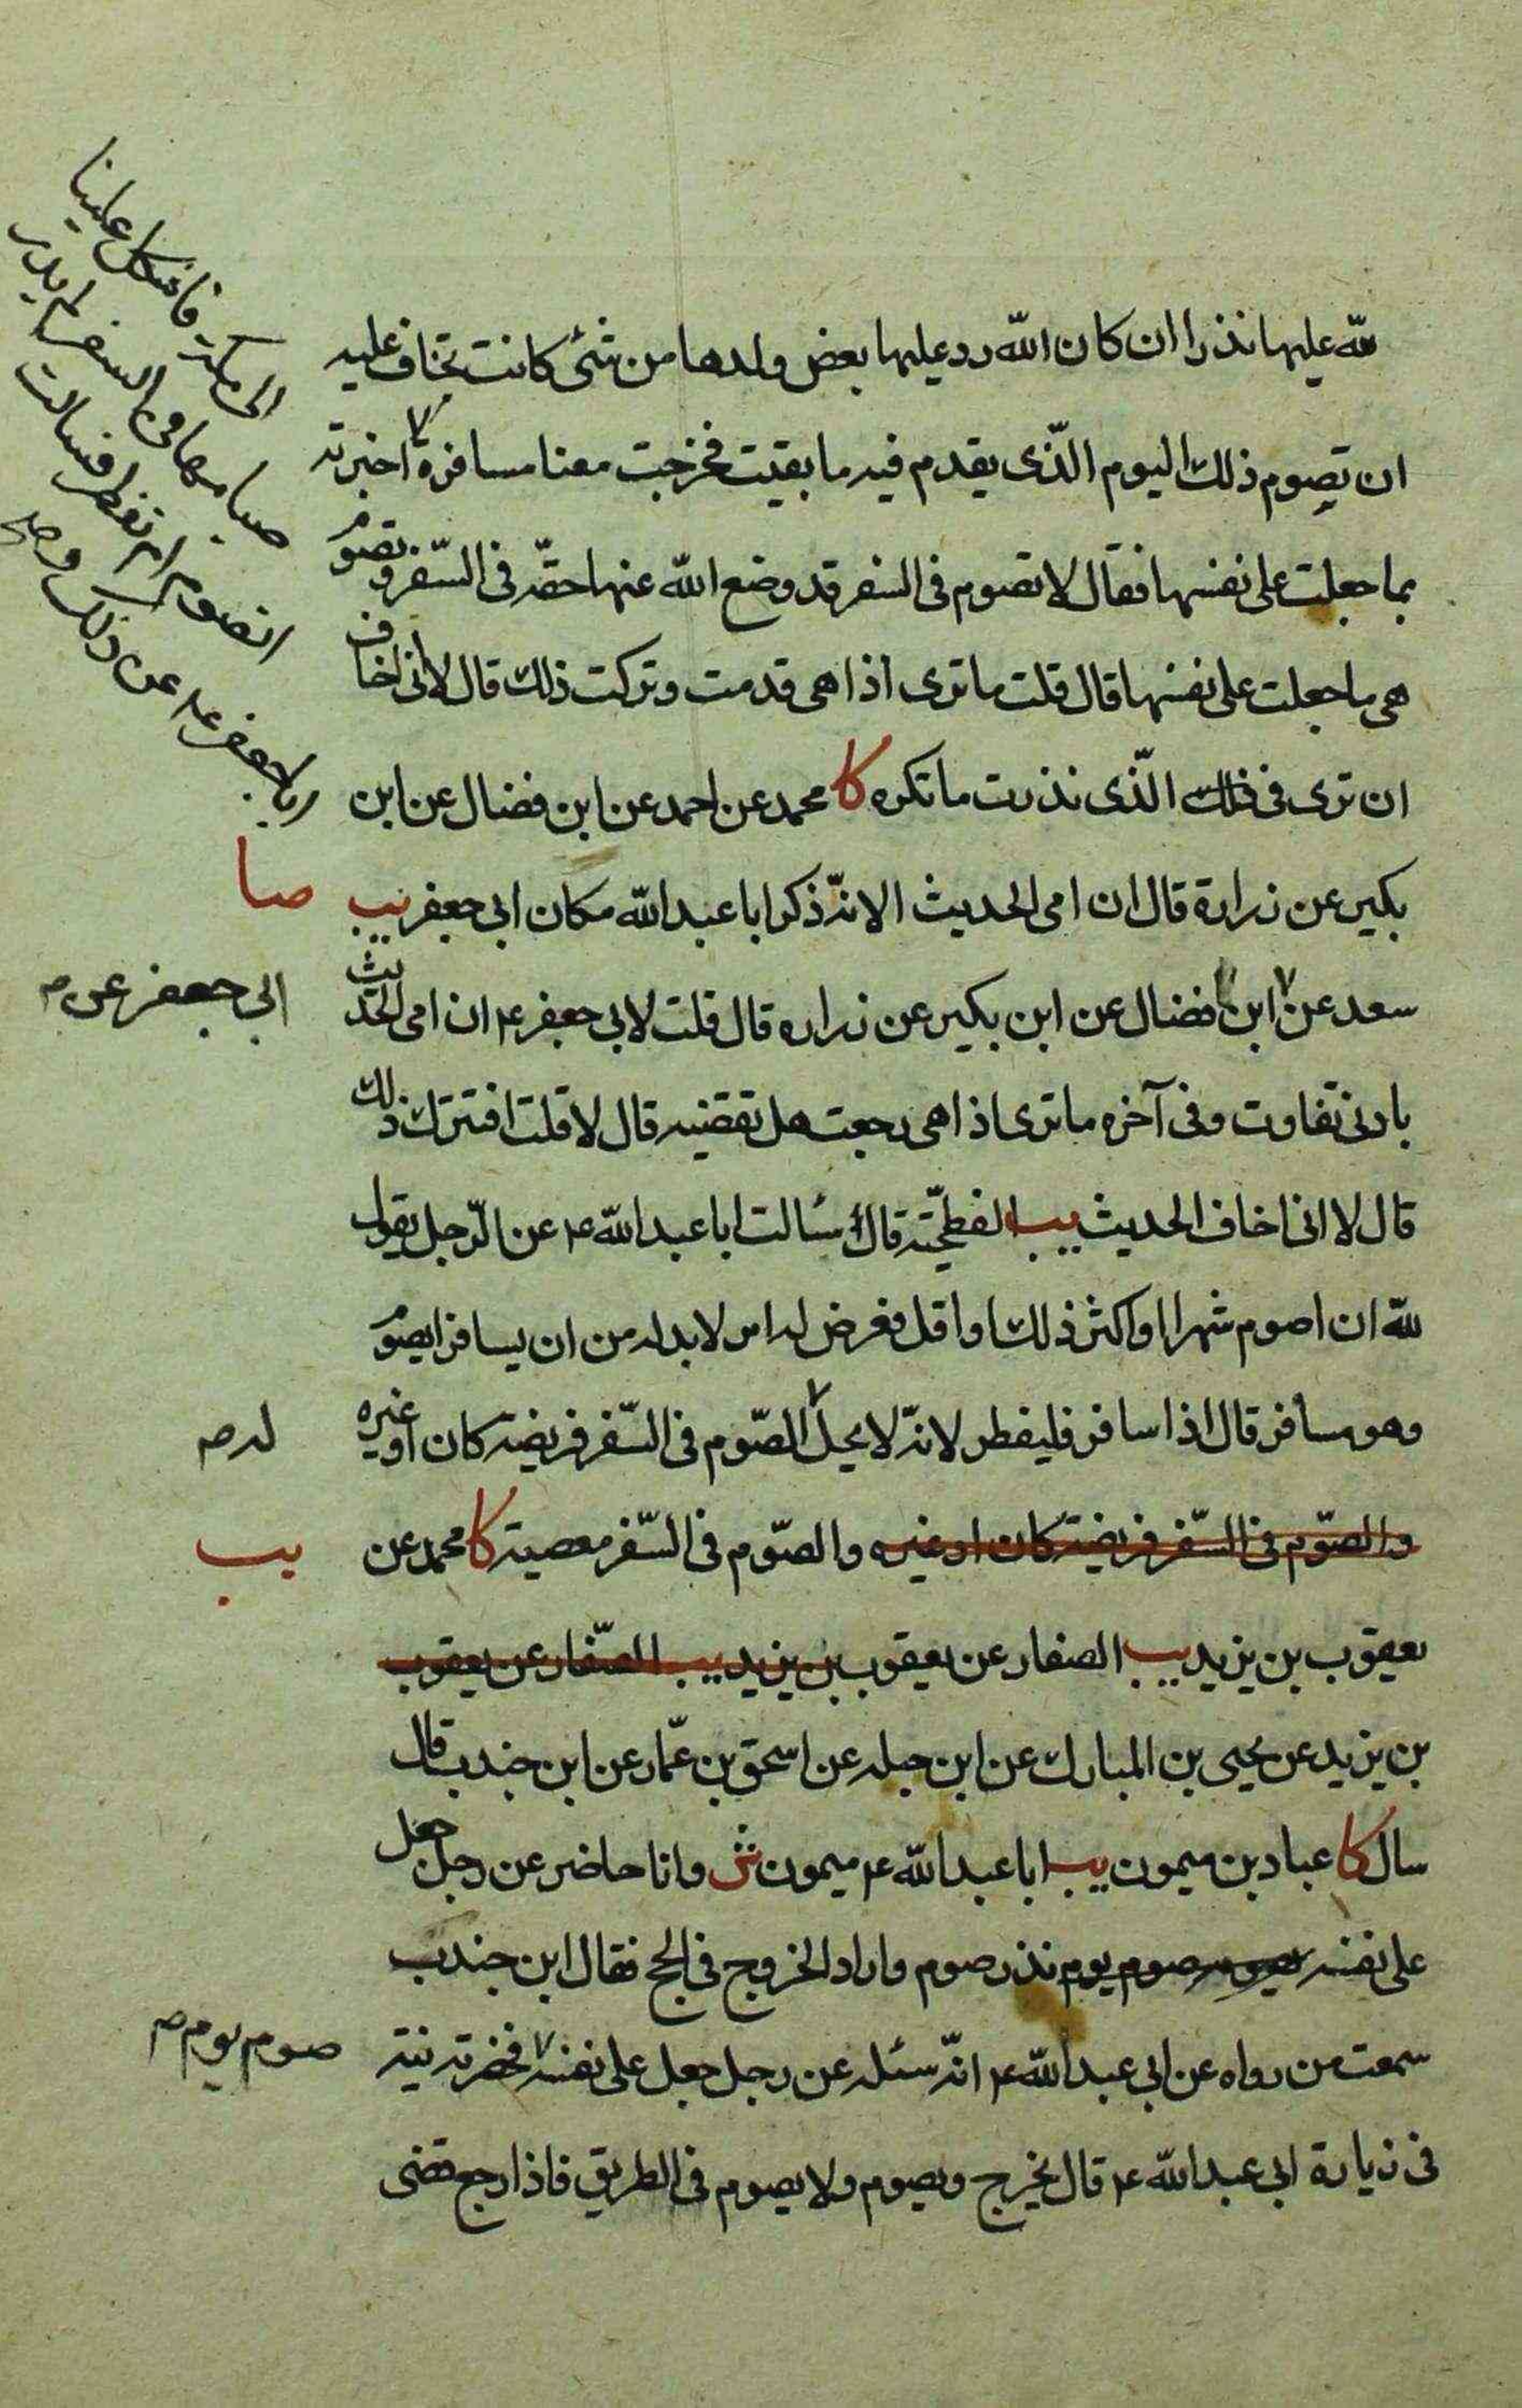 لله عليها نذرا ان كان الله رد عليها بعض ولدها من شئ كانت تخاف عليه
ان تصوم ذلك اليوم الّذى يقدم فيه ما بقيت فخرجت معنا مسافرة اخبرته
بما جعلت على نفسها فقال لا تصوم فى السفر قد وضع الله عنها حقّه فى السّفر و تصوم
هى ما جعلت على نفسها قال قلت ما ترى اذا هى قدمت وتركت ذلك قال لا انى اخاف
ان ترى فى ذلك الّذى نذرت ما تكره كا محمد عن احمد عن ابن فضال عن ابن
بكير عن زرارة قال ان امى الحديث الا انّه ذكر ابا عبد الله مكان ابى جعفر يب
سعد عن ابن فضال عن ابن بكير عن زراره قال قلت لابى جعفر ع ان امى الحديث
بادنى تفاوت وفى آخره ما ترى اذا هى رجعت هل تقضيه قال لا قلت افتترك ذلك
قال لا انى اخاف الحديث يب الفطحيّة قال سئالت ابا عبد الله ع عن الرّجل يقول
لله ان اصوم شهرا او اكثر ذلك او اقل فعرض له امر لا بد له من ان يسافر ايصوم
وهو مسافر قال اذا سافر فليفطر لانّه لا يحلّ الصّوم فى السّفر فريضة كان او غيره
والصّوم فى السّفر فريضة كان او غيره والصّوم فى السّفر معصية كا محمد عن
يعقوب بن يزيد يب الصفار عن يعقوب بن يزيد يب الصّفار عن يعقوب
بن يزيد عن يحيى بن المبارك عن ابن جبله عن اسحق بن عمّار عن ابن جندب قال
سال كا عباد بن ميمون يب ابا عبد الله ع ميمون ش وانا حاضر عن رجل جعل
على نفسه صوم يوم نذر صوم واراد الخروج فى الحج فقال ابن جندب
سمعت من رواه عن ابى عبد الله ع انّه سئله عن رجل جعل على نفسه فحضرته نية
فى زيارة ابى عبد الله ع قال يخرج ويصوم ولا يصوم فى الطريق فاذا رجع قضى
الى مكة فاشكل علينا
صيامها فى السفر لم يدر
اتصوم ام تفطر فسالت
ابا جعفر ع عن ذلك و
صا
ابى جعفر عن م
له م
يب
صوم يوم م